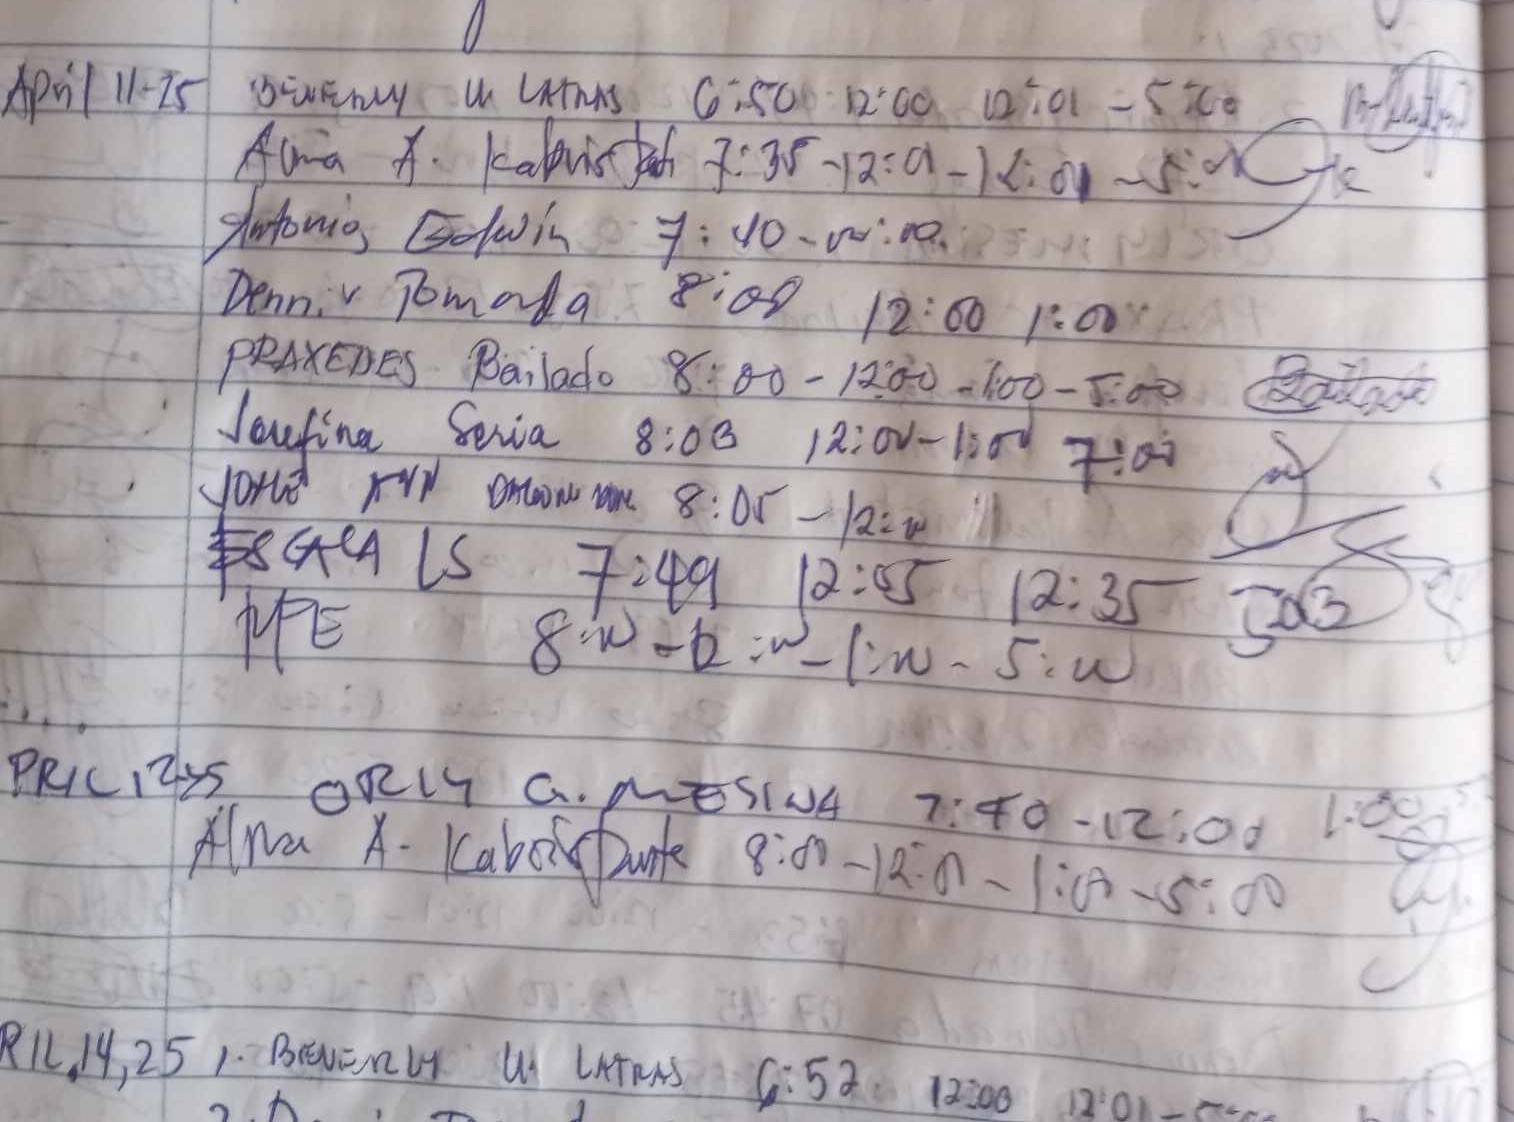 April 11-25 BEVERLY U. LATRAS 6:50 12:00 12:01 - 5:00
Alma A. 7:35 - 12:01 - 12:01 - 5:01
Antonio, Edwin 7:40 -
Dennis Tomada 8:00 12:00 1:00
PRAXEDES Bailado 8:00 - 12:00 - 1:00 - 5:00 Bailado
Josefina Seria 8:03 12:00 - 1:00 7:00
8:05 - 12:
ESCALA LS 7:49 12:05 12:35 5:03
8:00 - 12:00 - 1:00 - 5:00
PRIL 12-25 ORLY G. MESINA 7:40 - 12:00 1:00
Alma A. 8:00 - 12:00 - 1:00 - 5:00
RIL, 14, 25 1. BEVERLY U. LATRAS 6:52 12:00 12:01 -
2.